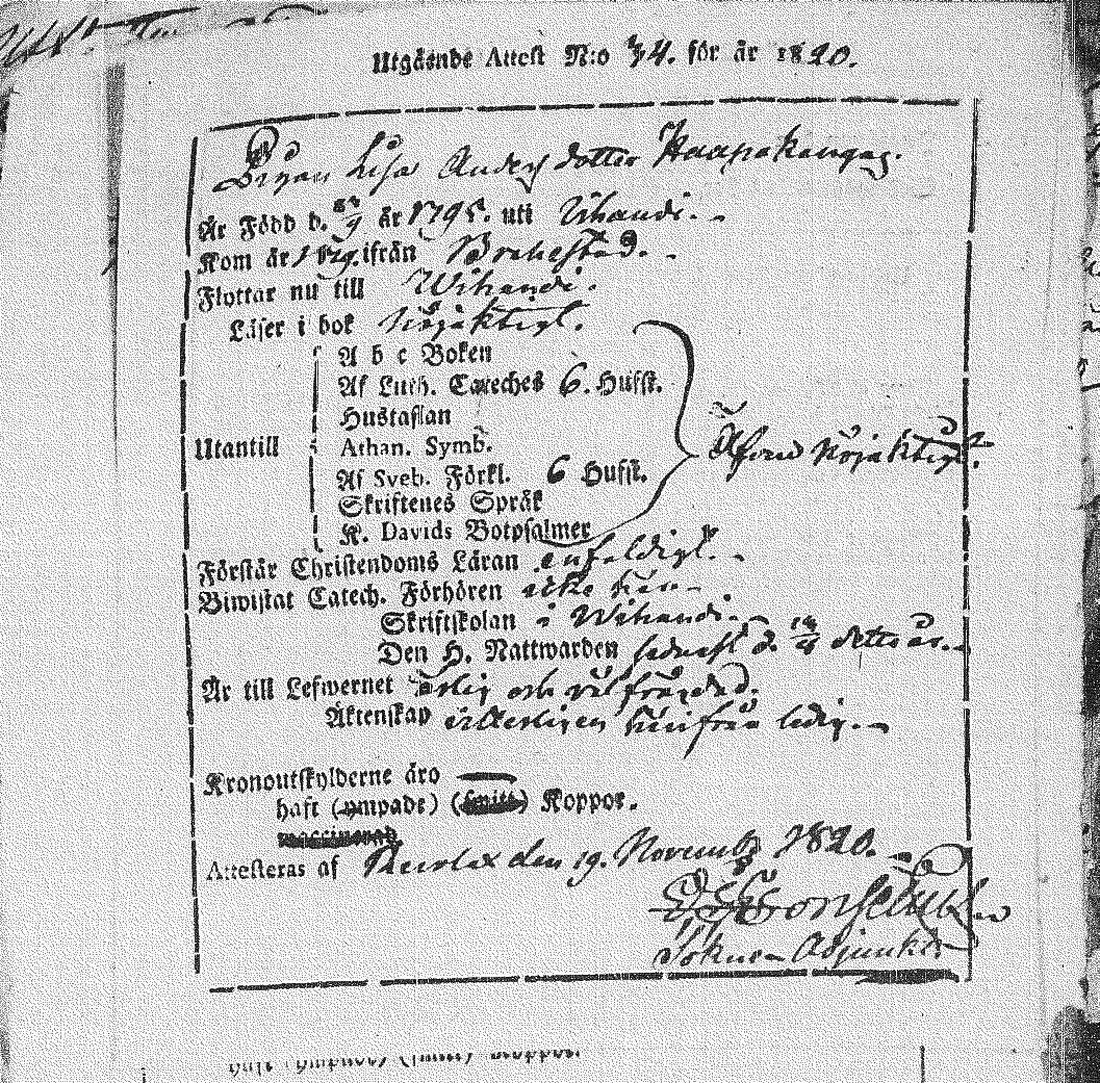 Utgående Attest N:o 74. för år 1820.
Pigan Lisa Anders dotter Haapakangas.
Är Född d. år 1795. uti Vihandi.
Kom år 1819. ifrån Brahestad.
Flyttar nu till Wihandi.
Läser i bok nöjaktigt.
A b c Boken
Af Luth. Cateches 6. Hufst.
Hustaflan
Utantill Athan. Symb. Äfven nöjaktigt.
Af Sveb. Förkl. 6 Hufst.
Skriftenes Språk
K. Davids Botpsalmer
Förstår Christendoms Läran enfaldigt.
Biwistat Catech. Förhören icke här
Skriftskolan i Wihandi.
Den H. Nattwarden sednast d. detta år.
Är till Lefwernet ärlig och välfrägdad.
Äktenskap härifrån ledig.
Kronoutskylderne äro —
haft (ympade) Koppor.
Attesteras af den 19. November 1820.
Sokne Adjunkt.